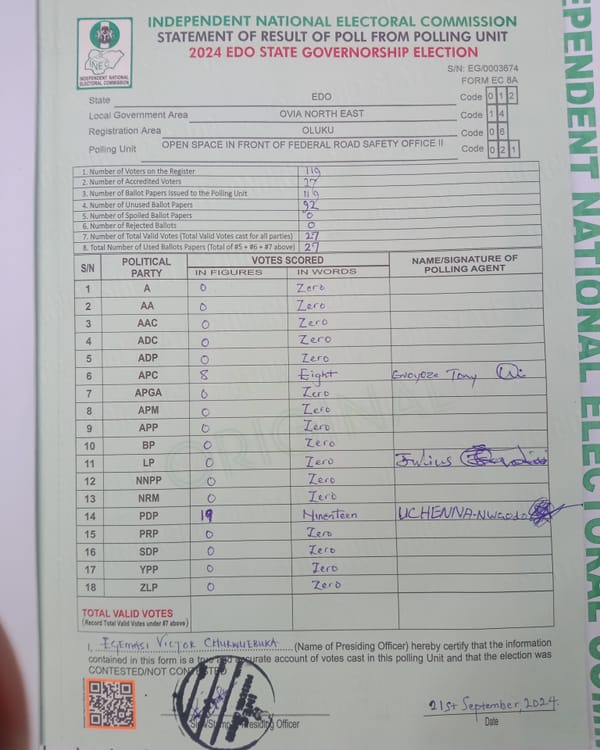 INDEPENDENT NATIONAL ELECTORAL COMMISSION
STATEMENT OF RESULT OF POLL FROM POLLING UNIT
2024 EDO STATE GOVERNORSHIP ELECTION
INEC
INDEPENDENT NATIONAL ELECTORAL COMMISSION
S/N: EG/0003674
FORM EC 8A
State EDO Code 0 1 2
Local Government Area OVIA NORTH EAST Code 1 4
Registration Area OLUKU Code 0 6
Polling Unit OPEN SPACE IN FRONT OF FEDERAL ROAD SAFETY OFFICE II Code 0 2 1
1. Number of Voters on the Register 119
2. Number of Accredited Voters 27
3. Number of Ballot Papers Issued to the Polling Unit 119
4. Number of Unused Ballot Papers 92
5. Number of Spoiled Ballot Papers 0
6. Number of Rejected Ballots 0
7. Number of Total Valid Votes (Total Valid Votes cast for all parties) 27
8. Total Number of Used Ballots Papers (Total of #5 + #6 + #7 above) 27
S/N POLITICAL PARTY VOTES SCORED NAME/SIGNATURE OF POLLING AGENT
IN FIGURES IN WORDS
1 A 0 Zero
2 AA 0 Zero
3 AAC 0 Zero
4 ADC 0 Zero
5 ADP 0 Zero
6 APC 8 Eight Tony
7 APGA 0 Zero
8 APM 0 Zero
9 APP 0 Zero
10 BP 0 Zero
11 LP 0 Zero Julius
12 NNPP 0 Zero
13 NRM 0 Zero
14 PDP 19 Nineteen UCHENNA-Nwaodo
15 PRP 0 Zero
16 SDP 0 Zero
17 YPP 0 Zero
18 ZLP 0 Zero
ORIGINAL
TOTAL VALID VOTES
(Record Total Valid Votes under #7 above)
I, EGEMASI VICTOR CHUKWUEBUKA (Name of Presiding Officer) hereby certify that the information
contained in this form is a true and accurate account of votes cast in this polling Unit and that the election was
CONTESTED/NOT CONTESTED
21st September, 2024.
Sign/Stamp Presiding Officer Date
INDEPENDENT NATIONAL ELECTORAL COMM